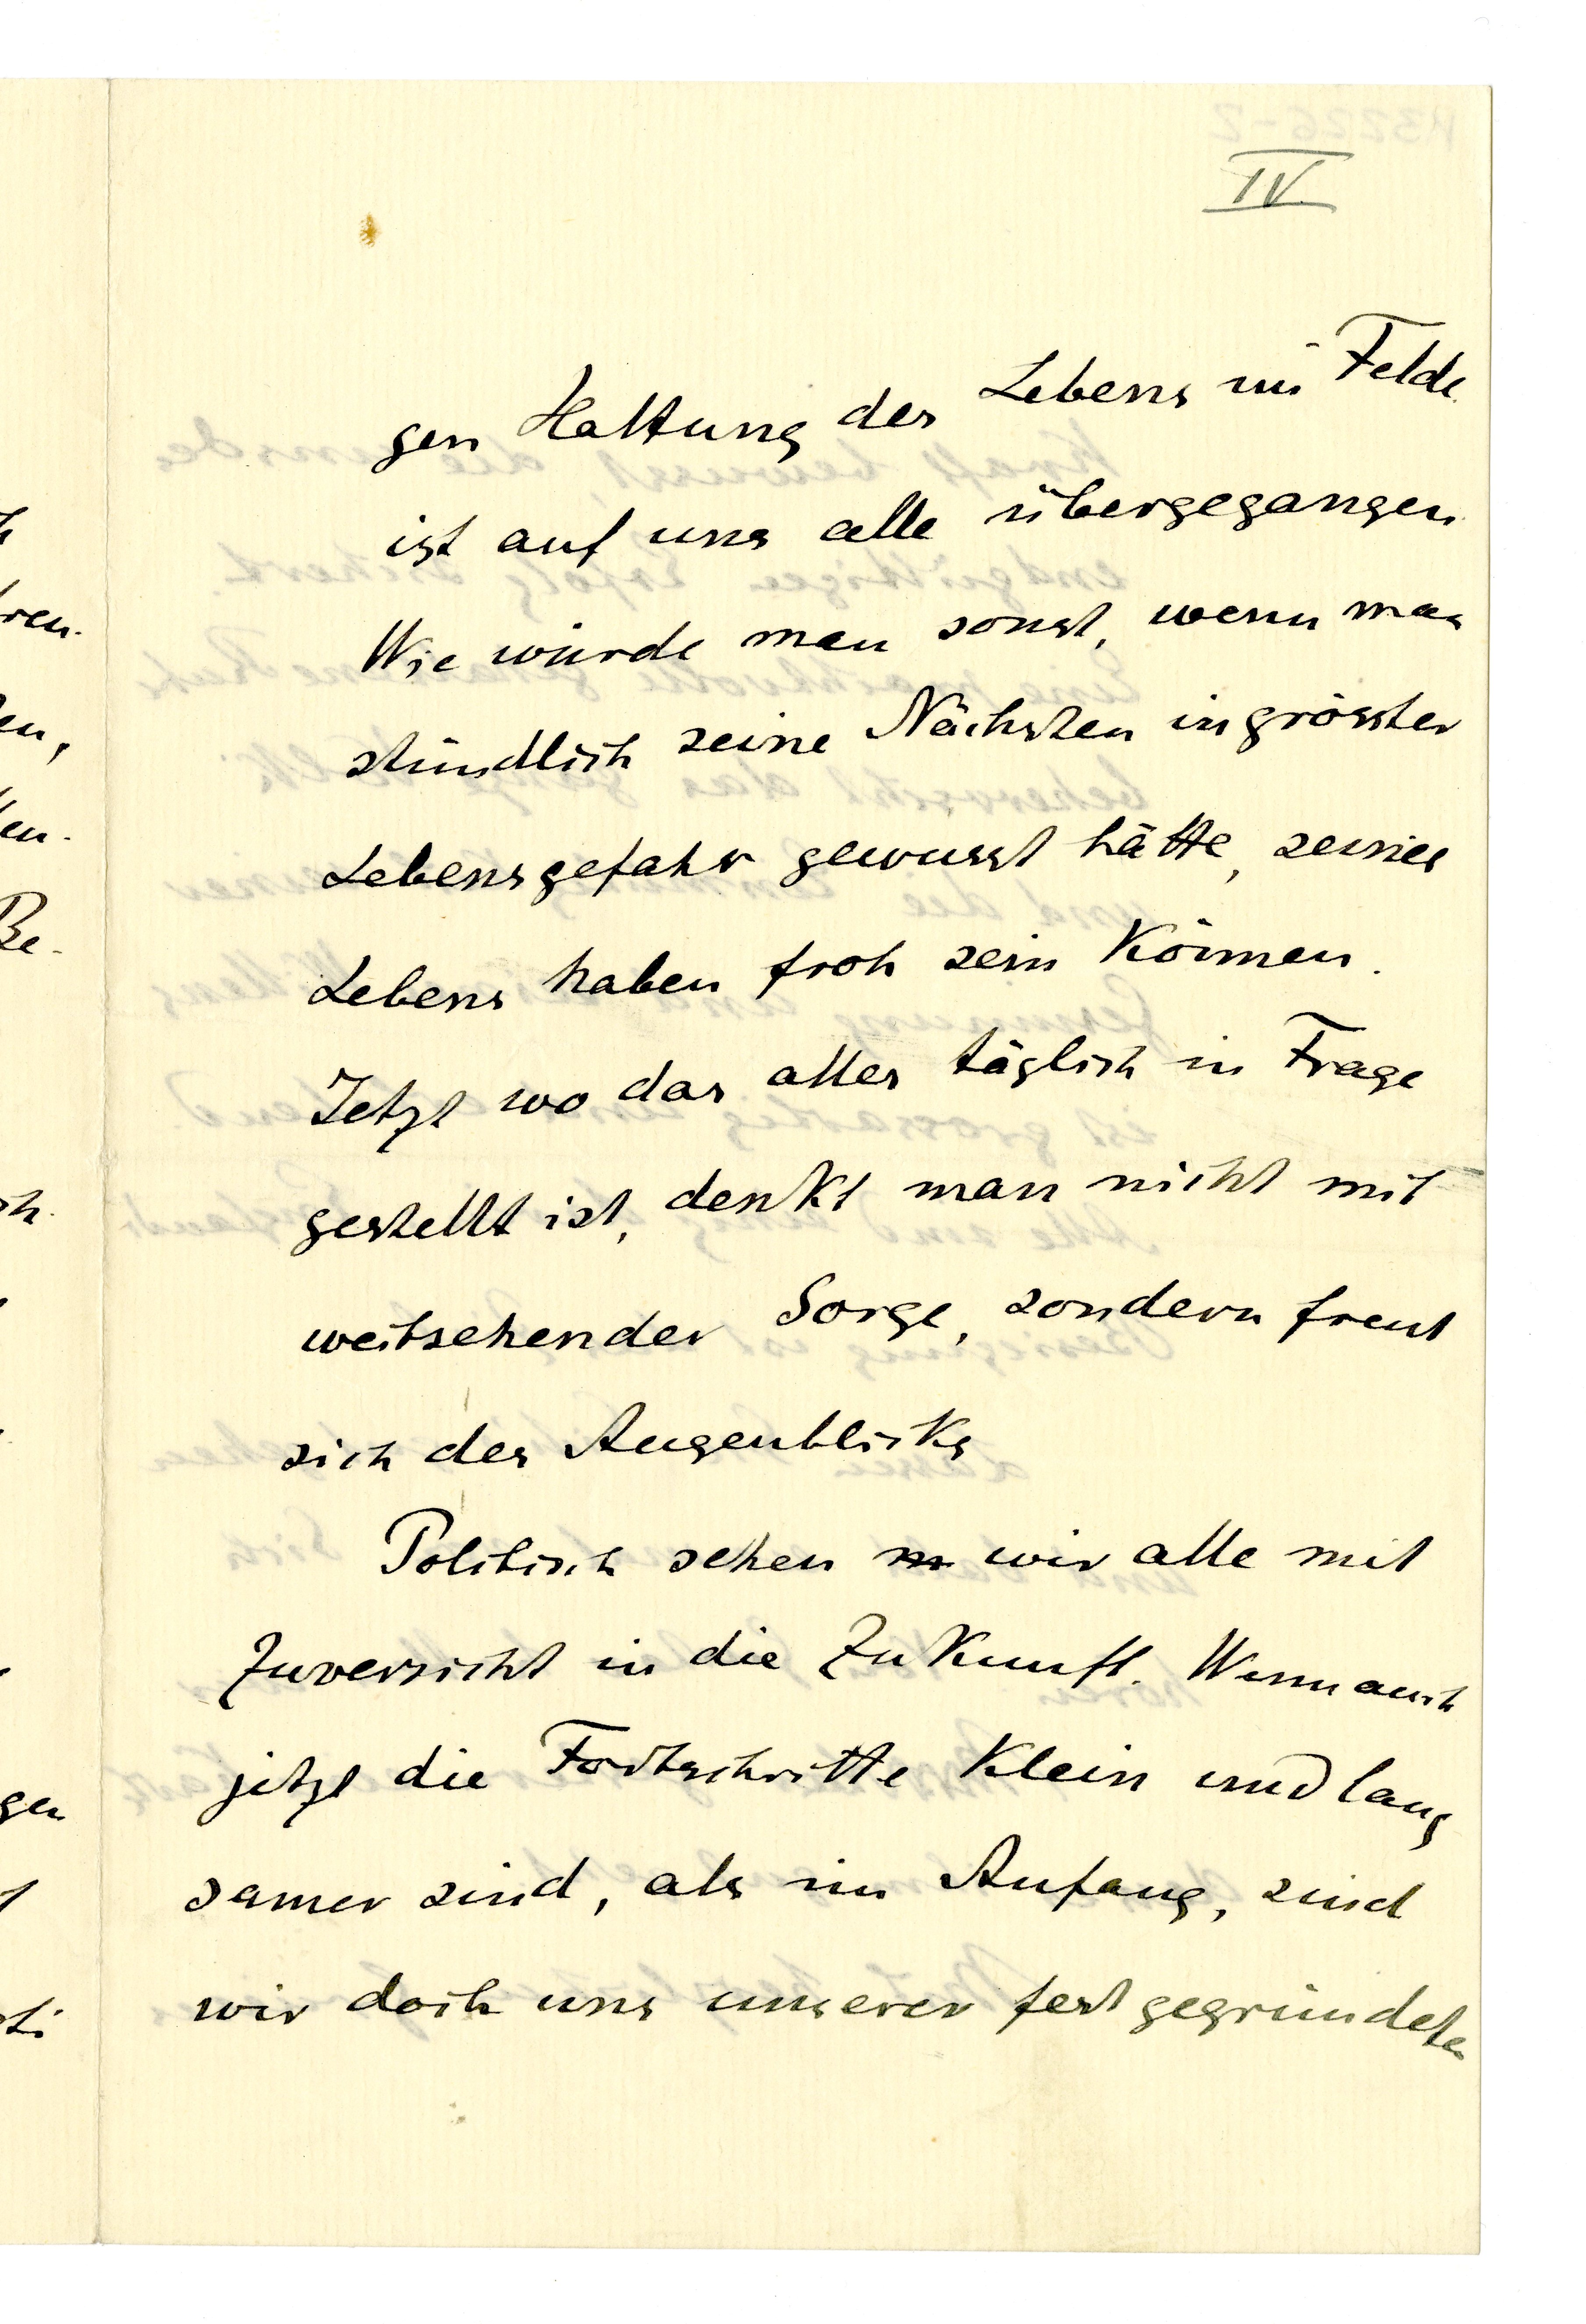 IV.
gen Haltung des Lebens im Felde
ist auf uns alle übergegangen.
Wie würde man sonst, wenn man
stündlich seine Nächsten in grösster
Lebensgefahr gewusst hätte, seines
Lebens haben froh sein können.
Jetzt wo das alles täglich in Frage
gestellt ist, denkt man nicht mit
weitsehender Sorge, sondern freut
sich des Augenblicks
Politisch sehen wir alle mit
Zuversicht in die Zukunft. Wenn auch
jetzt die Fortschritte klein und lang
samer sind, als im Anfang, sind
wir doch uns unserer fest gegründeten